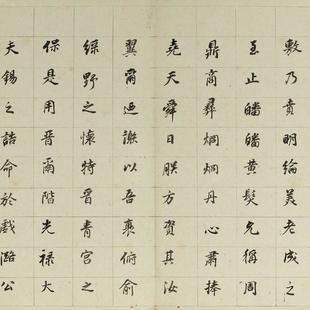 敷乃賁明綸美老成之
至止皤皤黃髮允稱周
鼎商彝炯炯丹心肅捧
堯天舜日朕方資其汝
翼爾迺謙以吾衰俯俞
綠野之懷特晉青宮之
保是用晉爾階光祿大
夫錫之誥命於戲潞公